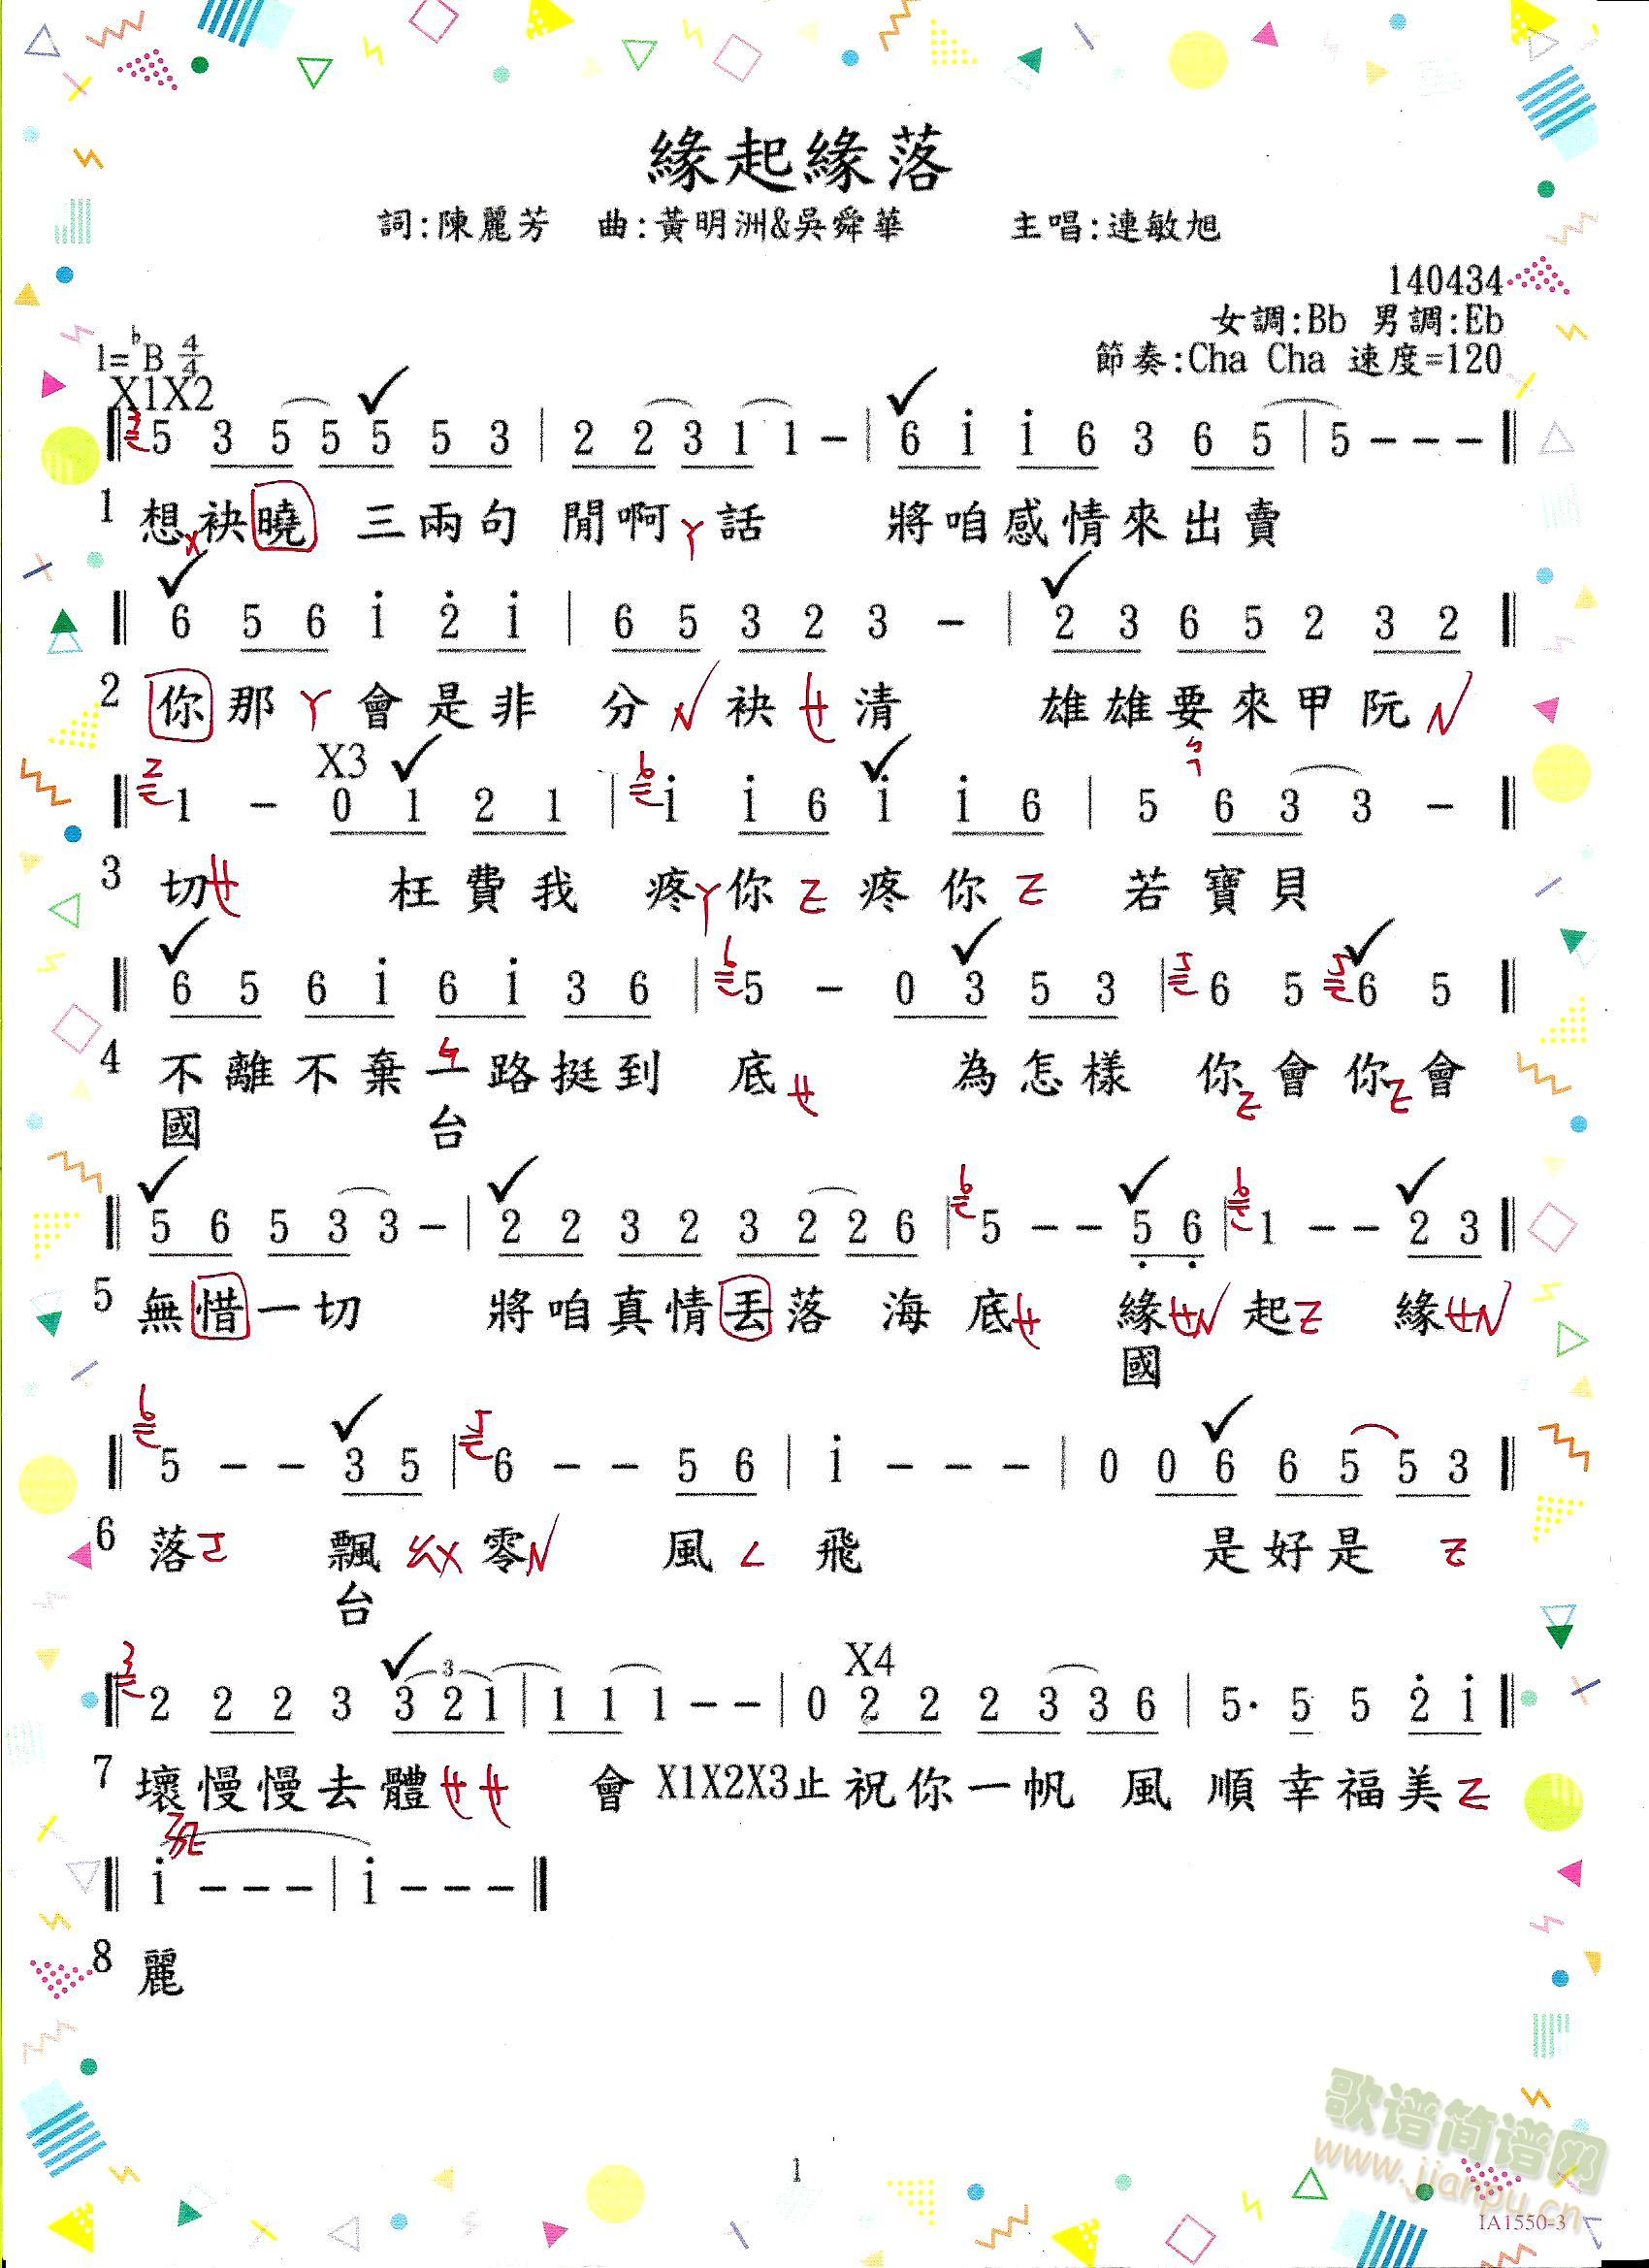 緣起緣落
詞:陳麗芳 曲:黃明洲&吳舜華 主唱:連敏旭
140434
女調:Bb 男調:Eb
1=♭B 4/4 節奏:Cha Cha 速度=120
X1X2
5 3 5 5 5 5 3 | 2 2 3 1 1 - | 6 i i 6 3 6 5 | 5 - - -
1 想袂曉 三兩句 閒啊ㄚ話 將咱感情來出賣
6 5 6 i 2 i | 6 5 3 2 3 - | 2 3 6 5 2 3 2
2 你那ㄚ會是非 分 袂ㄝ清 雄雄要來甲阮
X3
1 - 0 1 2 1 | i i 6 i i 6 | 5 6 3 3 -
3 切ㄝ 枉費我 疼ㄚ你 疼你 若寶貝
6 5 6 i 6 i 3 6 | 5 - 0 3 5 3 | 6 5 6 5
4 不離不棄一路挺到 底ㄝ 為怎樣 你會你會
國 台
5 6 5 3 3 - | 2 2 3 2 3 2 2 6 | 5 - - 5 6 | 1 - - 2 3
5 無惜一切 將咱真情丟落 海底ㄝ 緣ㄝ起 緣ㄝ
國
5 - - 3 5 | 6 - - 5 6 | i - - - | 0 0 6 6 5 5 3
6 落 飄ㄠㄨ零 風ㄥ飛 是好是
台
3
X4
2 2 2 3 3 2 1 | 1 1 1 - - | 0 2 2 2 3 3 6 | 5· 5 5 2 i
7 壞慢慢去體ㄝㄝ 會 X1X2X3止祝你一帆 風 順幸福美
i - - - | i - - -
8 麗
歌谱简谱网
www.jianpu.cn
1
IA1550-3